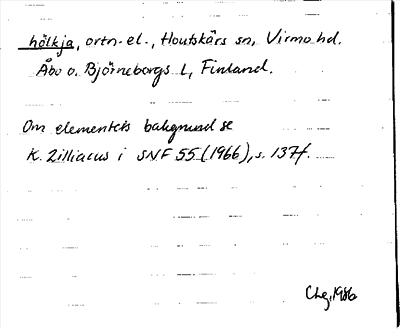 hölkja, ortn.el., Houtskärs sn, Virmo hd.
Åbo o. Björneborgs l, Finland.
Om elementets bakgrund se
K. Zilliacus i SNF 55 (1966), s. 137f.
1986